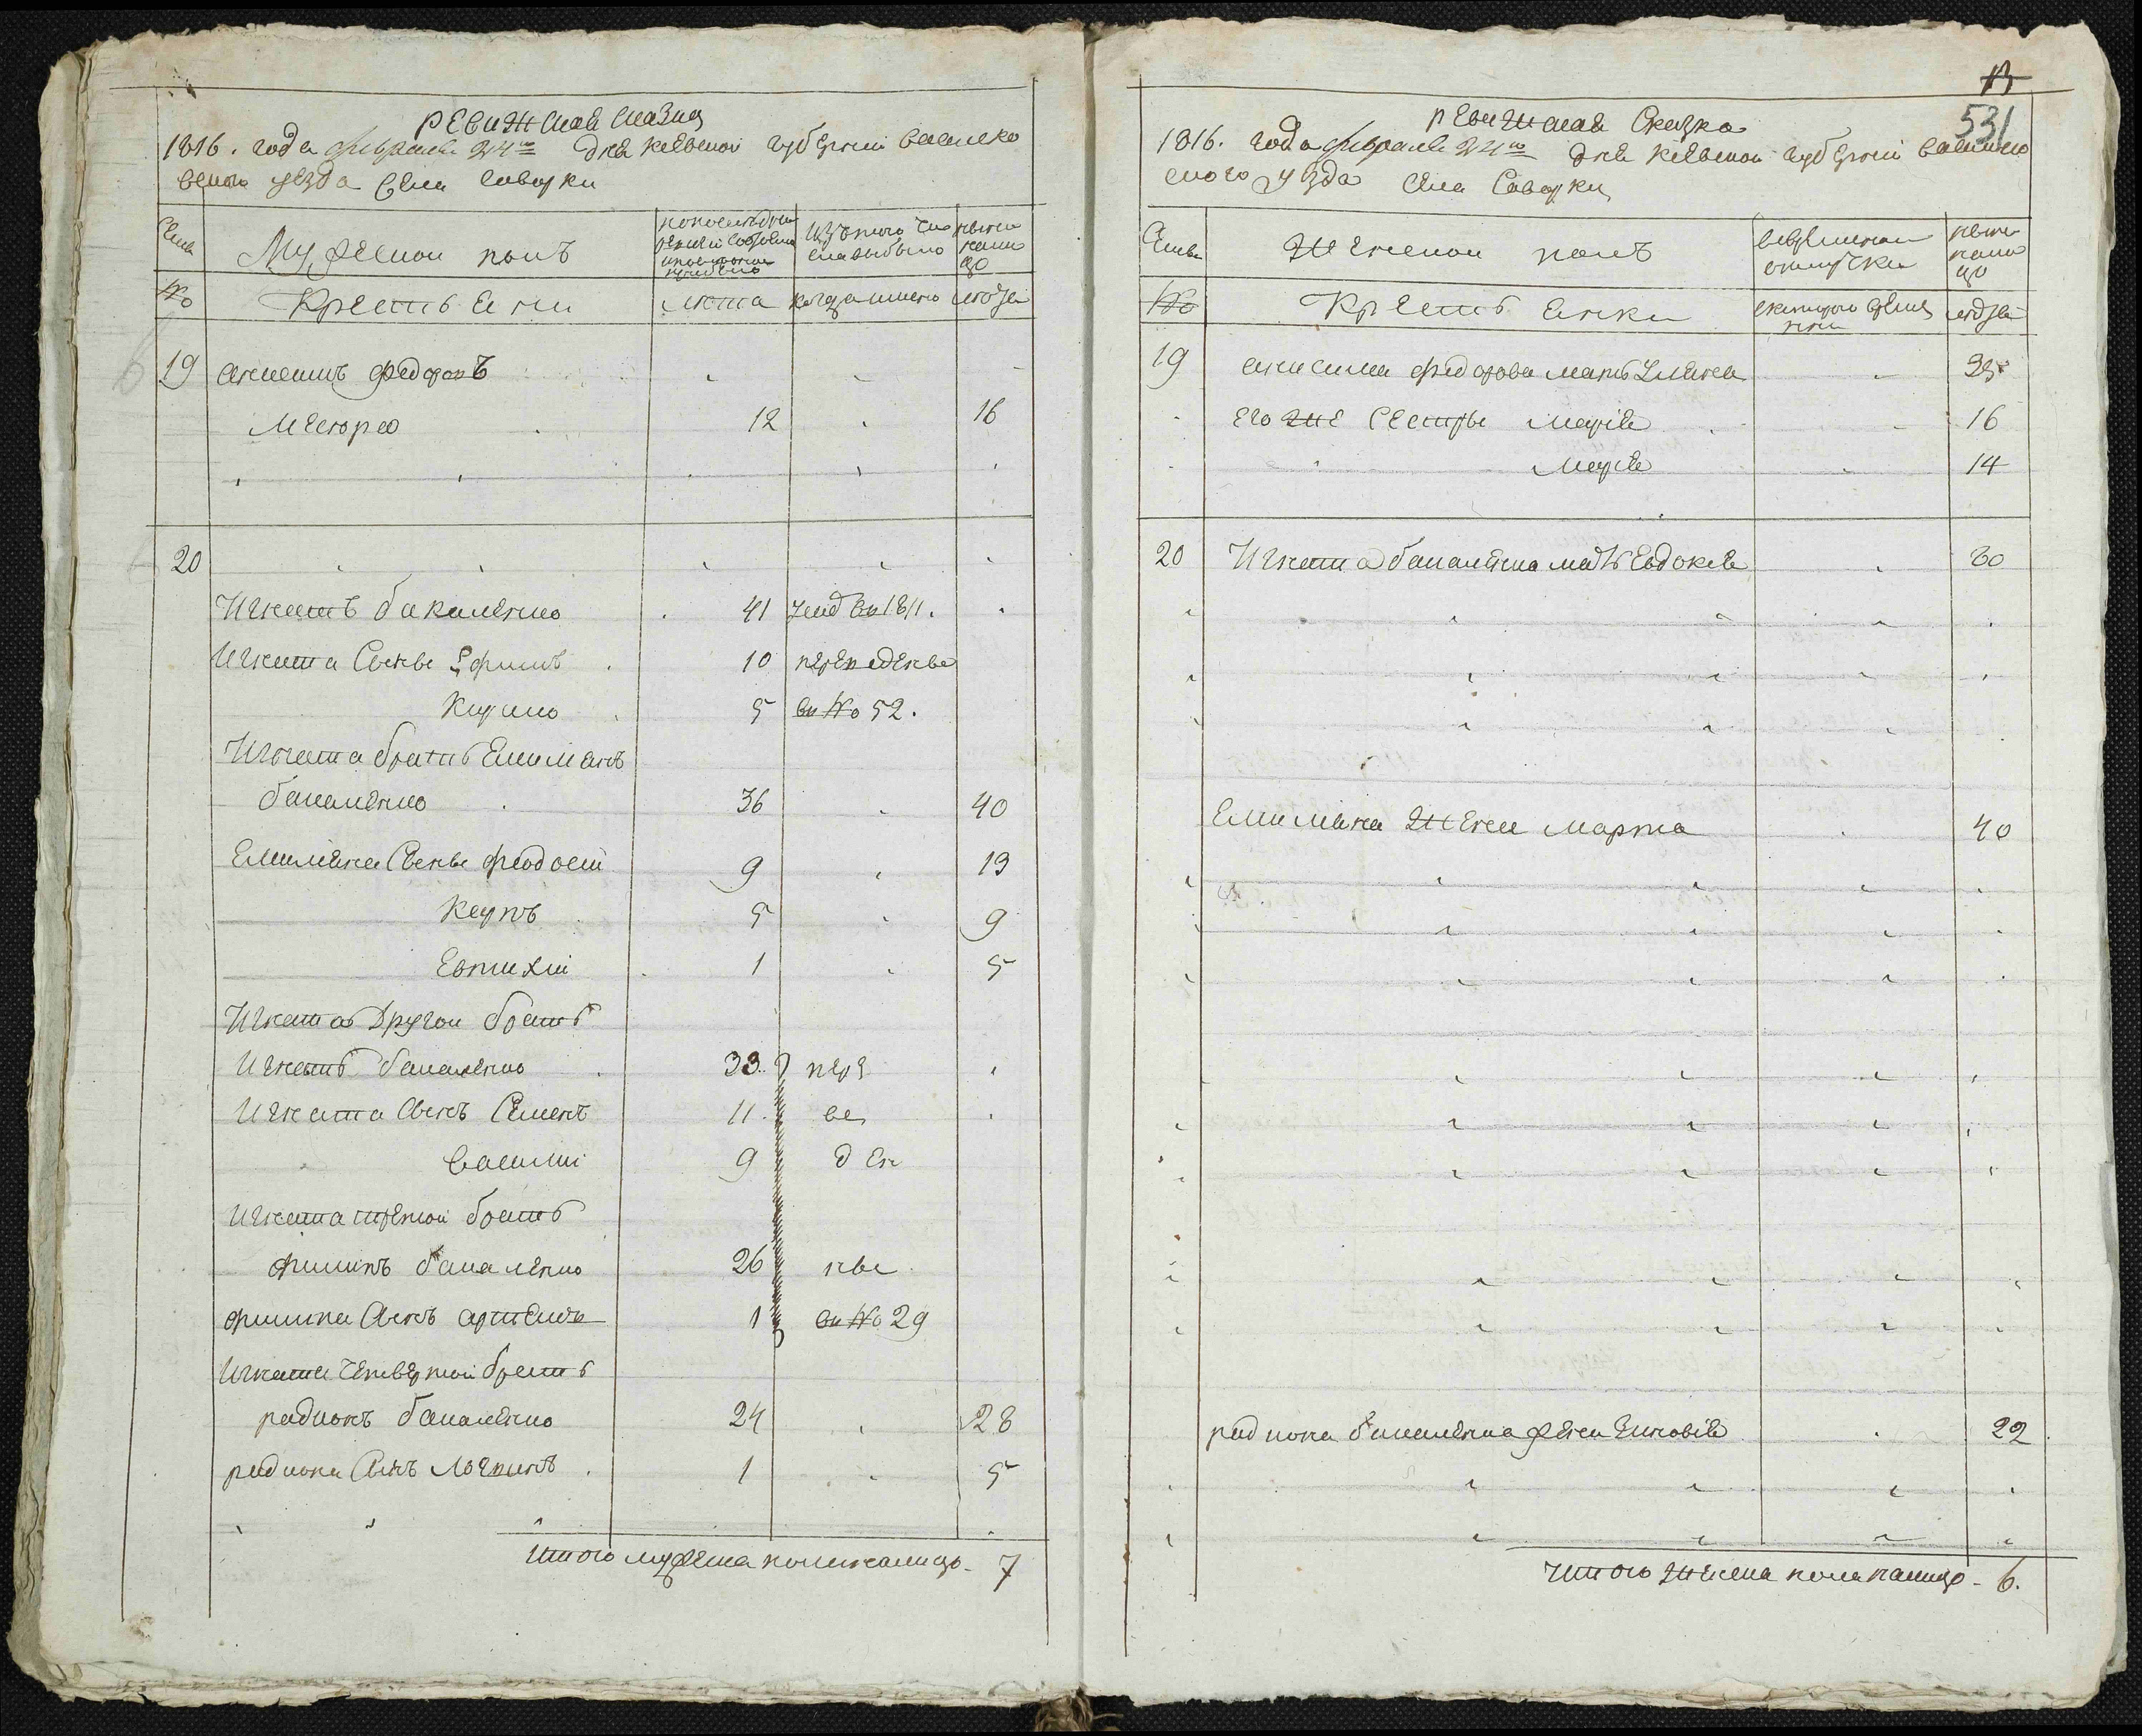 ревижская сказка
1816. года февраля 24го дня киевской губернии василко
вского уезда села саварки
Семьи
Мужеской полъ
Изъ того чи
сла выбыло
ныне
на ли
цо
№
Крестьяни
лета
когда имено
лета
19
анисимъ федоровъ
12
16
20
Игнатъ бакаленко
41
умер въ 1811.
Игната Сыны Ефимъ
10
переведены
Кирило
5
въ № 52.
Игната братъ Емилианъ
бакаленко
36
40
Емилияна Сыны феодосій
9
13
Карпъ
5
9
Евтихій
1
5
Игната Другой братъ
Игнатъ бакаленко
33
пере
Игната Сынъ Семенъ
11
ве
Василий
9
ден
Игната третой братъ
филипъ бакаленко
26
ны
филипа Сынъ артемъ
1
въ № 29
Игната Четвертой братъ
радионъ бакаленко
24
28
радиона Сынъ Логинъ
1
5
Итого мужеска пола налицо - 7
13
531
ревижская Сказка
1816. года февраля 24го дня киевской губернии василков
ского уезда села Саварки
Семьи
Женской полъ
во временной
отлучки
ныне
на ли
цо
№
Крестьянки
с которого времени
лета
19
анисима федорова мать Улияна
35
его же Сестры Марія
16
Марія
14
20
Игната бакаленка мать Евдокія
60
Емилияна жена марта
40
радиона бакаленка жена Зиновія
22
Итого женска пола налицо - 6.